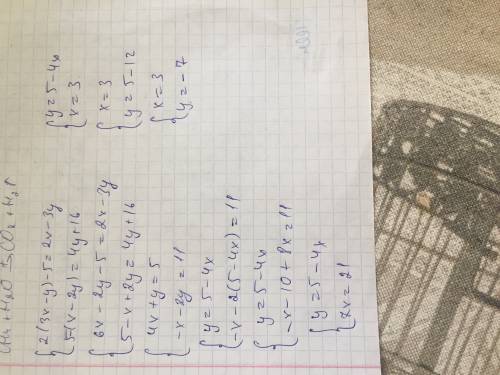 2(3x-y)-5=2x-3y
5-(x-2y)=4y+16
6x-2y-5=2x-3y
5-x+2y=4y+16
4x+y=5
-x-2y=11
y=5-4x
-x-2(5-4x)=11
y=5-4x
-x-10+8x=11
y=5-4x
7x=21
y=5-4x
x=3
x=3
y=5-12
x=3
y=-7